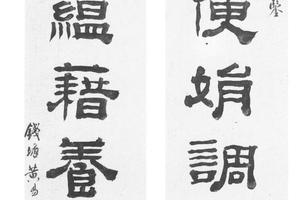 便娟調
鑒
緼藉養
錢塘黄易